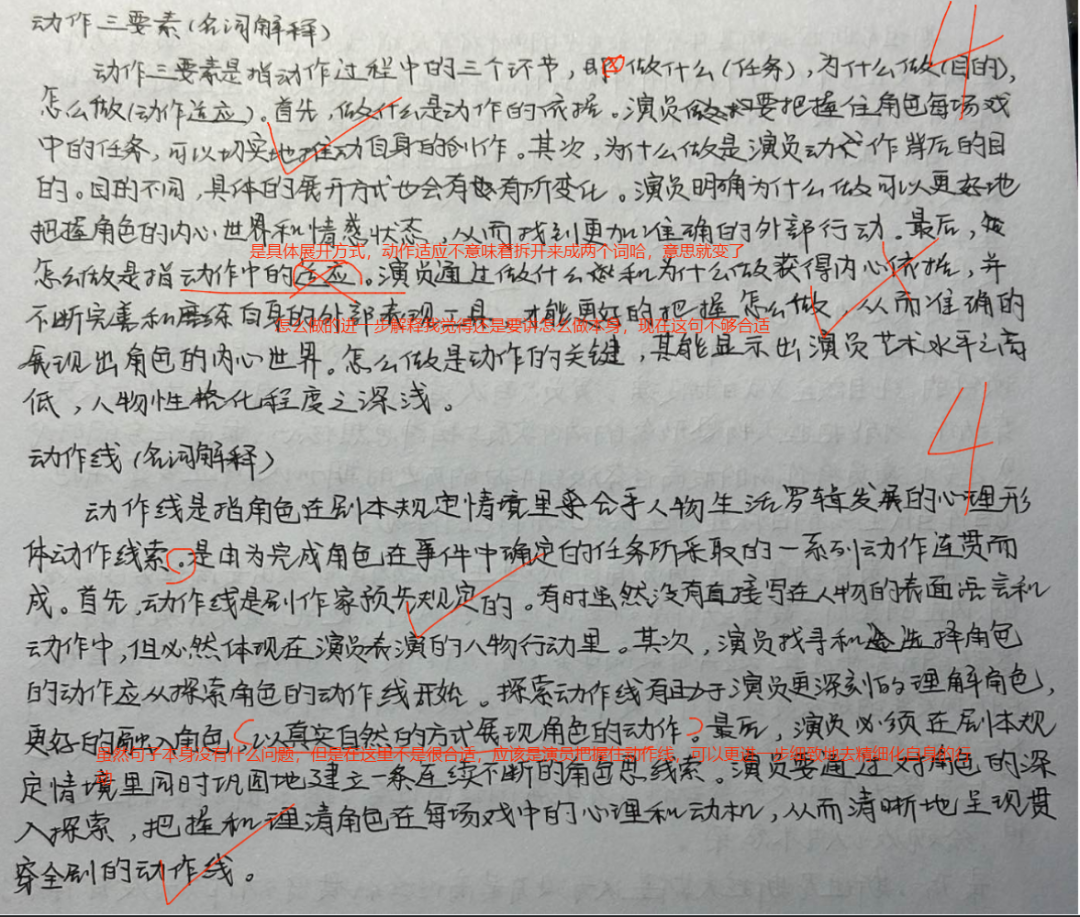 动作三要素(名词解释)
4
动作三要素是指动作过程中的三个环节,即做什么(任务),为什么做(目的),
怎么做(动作适应)。首先,做什么是动作的依据。演员要把握住角色每场戏
中的任务,可以切实地推动自身的创作。其次,为什么做是演员动作背后的目
的。目的不同,具体的展开方式也会有所变化。演员明确为什么做可以更好地
把握角色的内心世界和情感状态,从而找到更加准确的外部行动。最后,
是具体展开方式,动作适应不意味着拆开来成两个词哈,意思就变了
怎么做是指动作中的适应。演员通过做什么和为什么做获得内心依据,并
不断完善和磨练自身的外部表现工具,才能更好的把握怎么做,从而准确的
怎么做的进一步解释我觉得还是要讲怎么做本身,现在这句不够合适
展现出角色的内心世界。怎么做是动作的关键,其能显示出演员艺术水平之高
低,人物性格化程度之深浅。
4
动作线(名词解释)
动作线是指角色在剧本规定情境里合乎人物生活逻辑发展的心理形
体动作线索。是由为完成角色在事件中确定的任务所采取的一系列动作连贯而
成。首先,动作线是剧作家预先规定的。有时虽然没有直接写在人物的表面语言和
动作中,但必然体现在演员表演的人物行动里。其次,演员找寻和选择角色
的动作应从探索角色的动作线开始。探索动作线有助于演员更深刻的理解角色,
更好的融入角色,以真实自然的方式展现角色的动作。最后,演员必须在剧本规
虽然句子本身没有什么问题,但是在这里不是很合适,应该是演员把握住动作线,可以更进一步细致地去精细化自身的行
定情境里同时巩固地建立一条连续不断的角色思线索。演员要通过对角色的深
入探索,把握和理清角色在每场戏中的心理和动机,从而清晰地呈现贯
穿全剧的动作线。